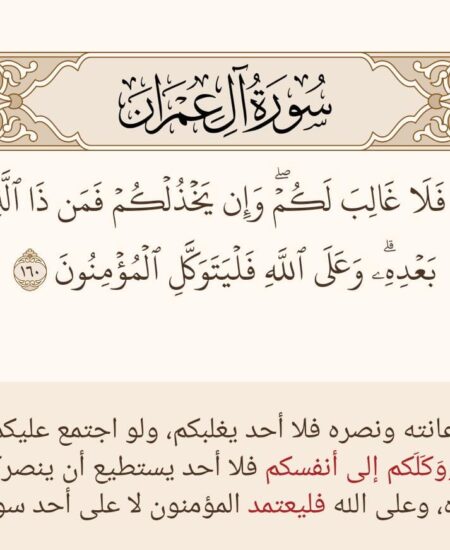 سُورَةُ آلِ عِمْرَانَ
فَلَا غَالِبَ لَكُمْۖ وَإِن يَخْذُلْكُمْ فَمَن ذَا
بَعْدِهِۦۗ وَعَلَى ٱللَّهِ فَلْيَتَوَكَّلِ ٱلْمُؤْمِنُونَ ١٦٠
ونصره فلا أحد يغلبكم، ولو اجتمع
وَكَلَكم إلى أنفسكم فلا أحد يستطيع أن
وعلى الله فليعتمد المؤمنون لا على أحد